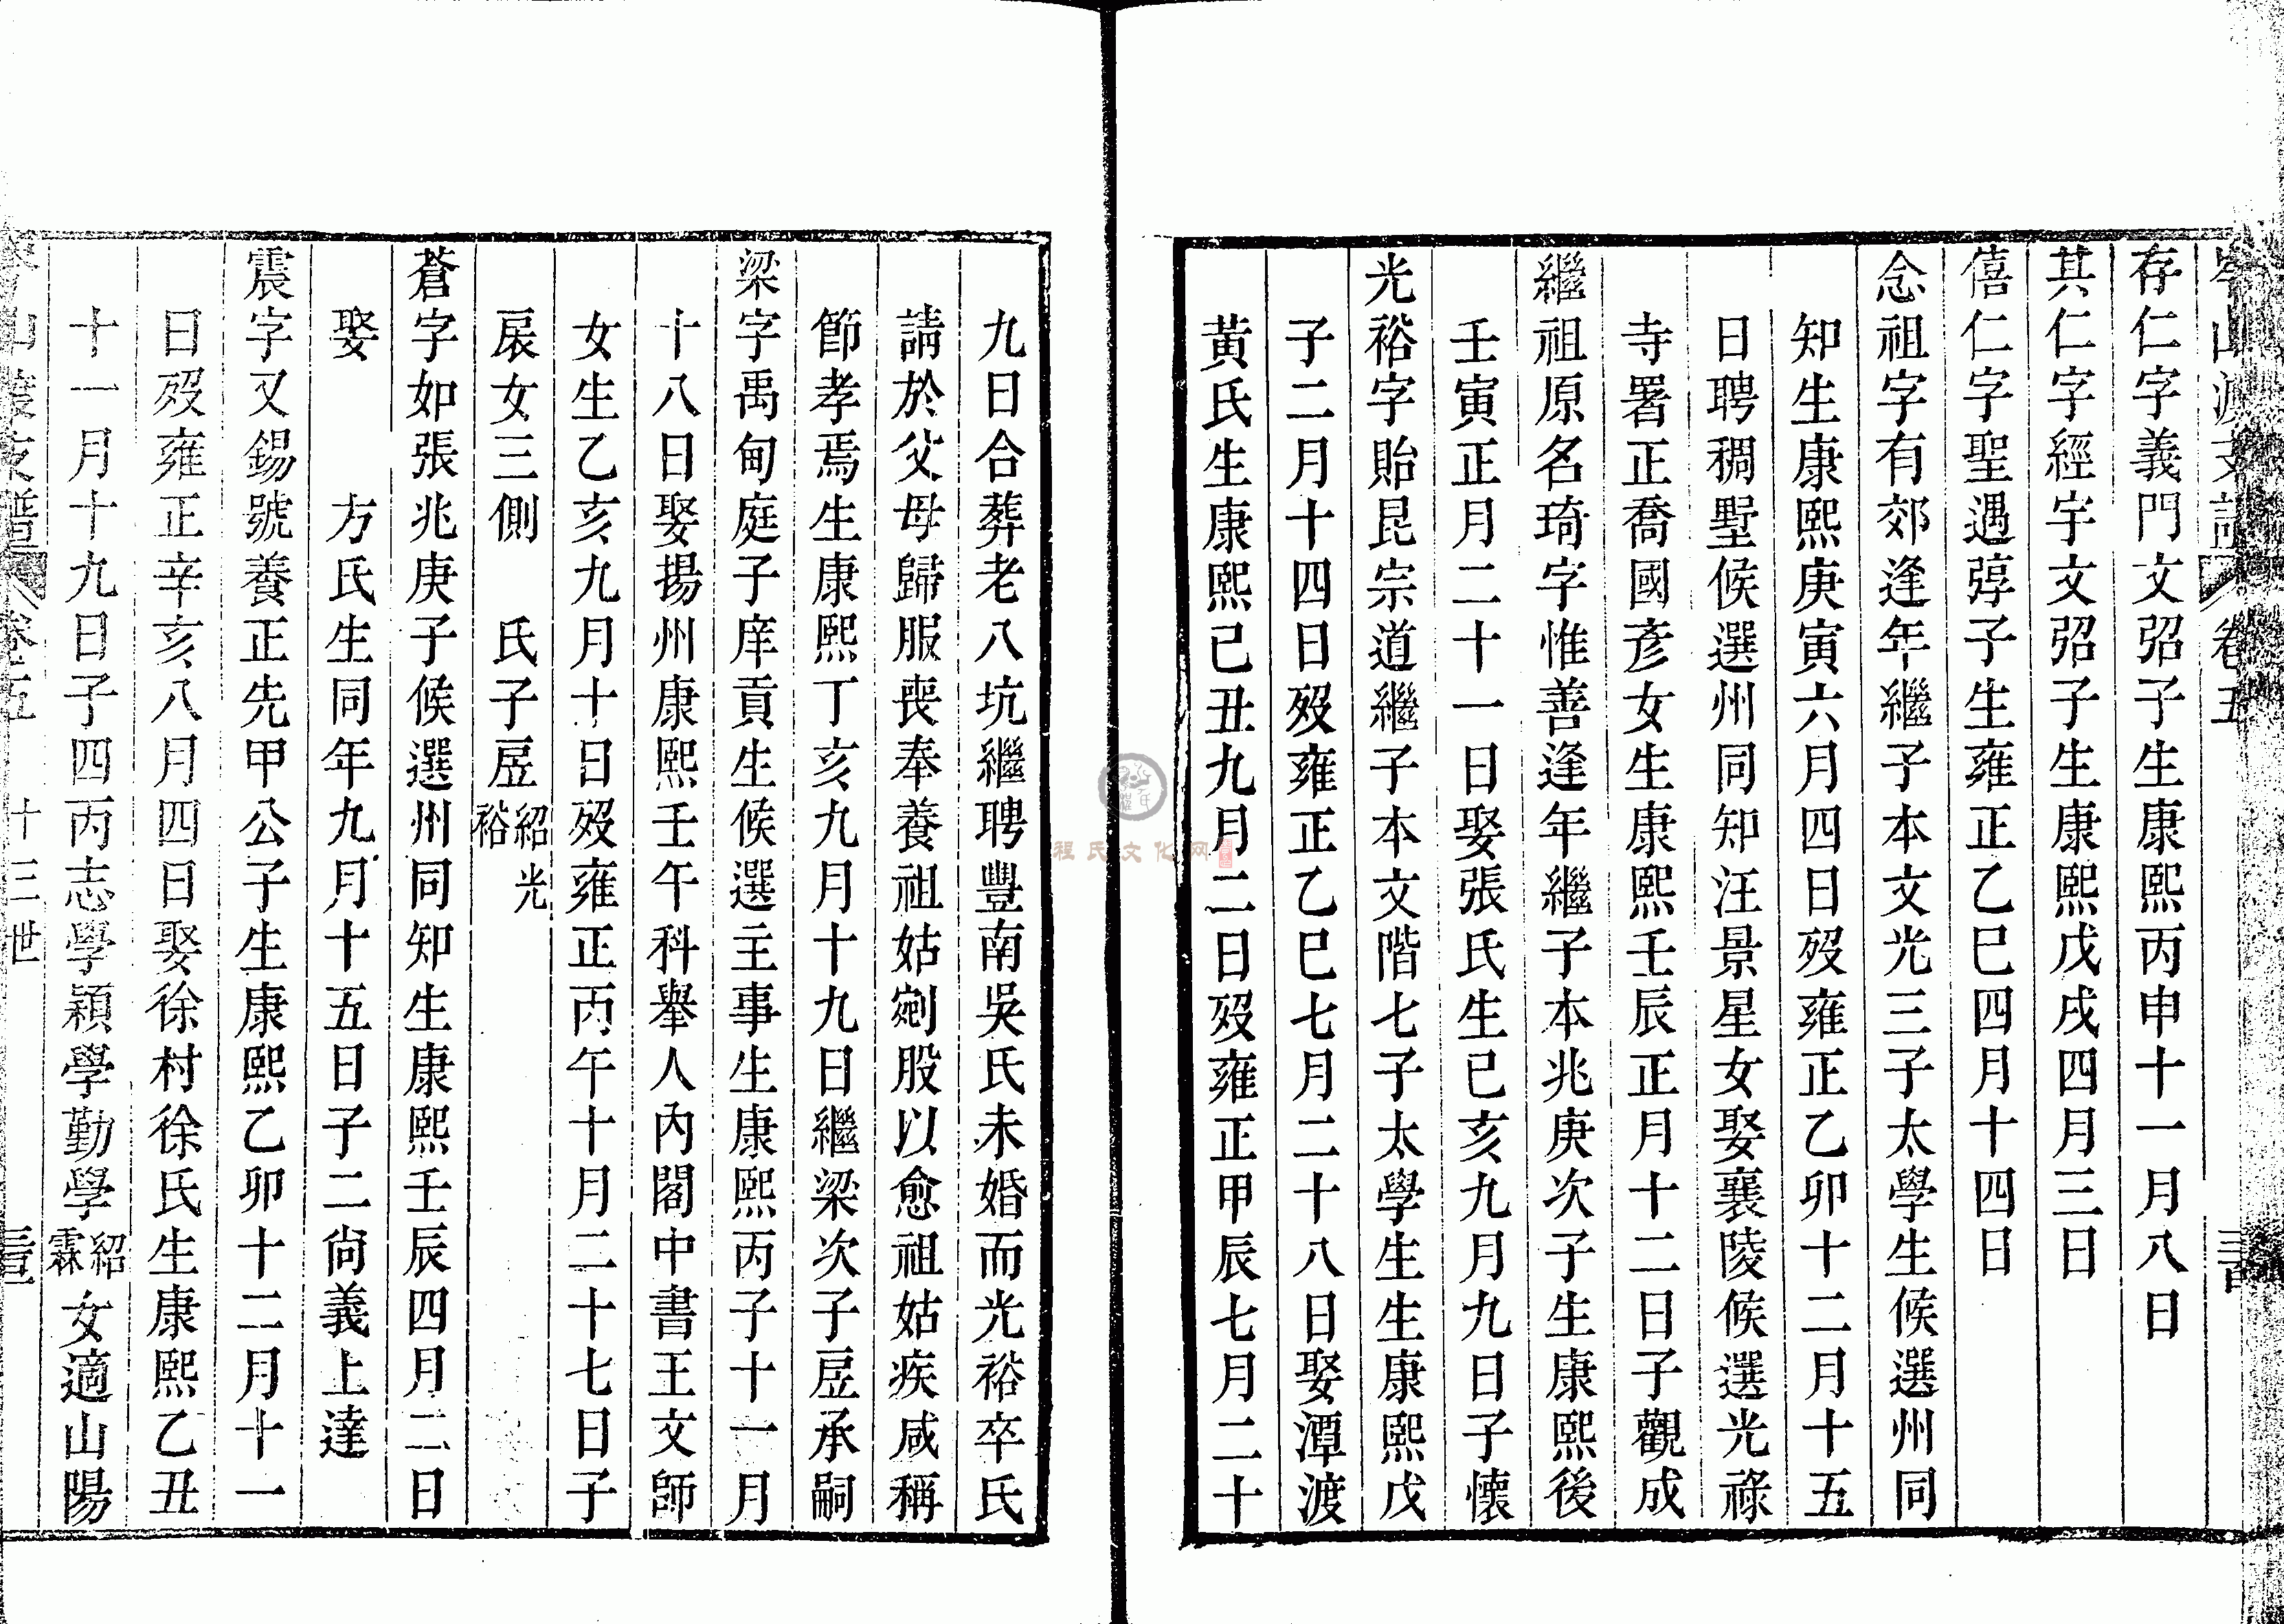 山渡支譜 卷五
存仁字義門文弨子生康熙丙申十一月八日
其仁字經宇文弨子生康熙戊戌四月三日
僖仁字聖遇弴子生雍正乙巳四月十四日
念祖字有郊逢年繼子本文光三子太學生候選州同
知生康熙庚寅六月四日歿雍正乙卯十二月十五
日聘稠墅候選州同知汪景星女娶襄陵候選光祿
寺署正喬國彥女生康熙壬辰正月十二日子觀成
繼祖原名琦字惟善逢年繼子本兆庚次子生康熙後
壬寅正月二十一日娶張氏生已亥九月九日子懷
光裕字貽昆宗道繼子本文階七子太學生生康熙戊
子二月十四日歿雍正乙巳七月二十八日娶潭渡
黃氏生康熙己丑九月二日歿雍正甲辰七月二十
九日合葬老八坑繼聘豐南吳氏未婚而光裕卒氏
請於父母歸服喪奉養祖姑剜股以愈祖姑疾咸稱
節孝焉生康熙丁亥九月十九日繼梁次子㞐承嗣
梁字禹甸庭子庠貢生候選主事生康熙丙子十一月
十八日娶揚州康熙壬午科舉人內閣中書王文師
女生乙亥九月十日歿雍正丙午十月二十七日子
扆女三側 氏子㞐紹光裕
蒼字如張兆庚子候選州同知生康熙壬辰四月二日
娶 方氏生同年九月十五日子二尙義上達
震字又錫號養正先甲公子生康熙乙卯十二月十一
日歿雍正辛亥八月四日娶徐村徐氏生康熙乙丑
十一月十九日子四丙志學穎學勤學紹霖女適山陽
山渡支譜 卷五 十三世
程氏文化网